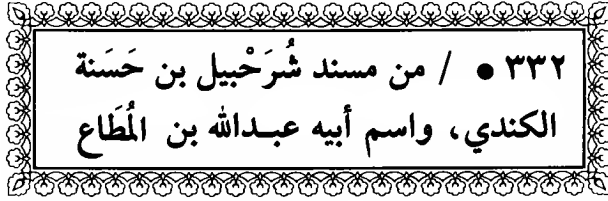 ٣٣٢ • / من مسند شُرَحْبيل بن حَسَنة
الكندي، واسم أبيه عبدالله بن المُطَاع